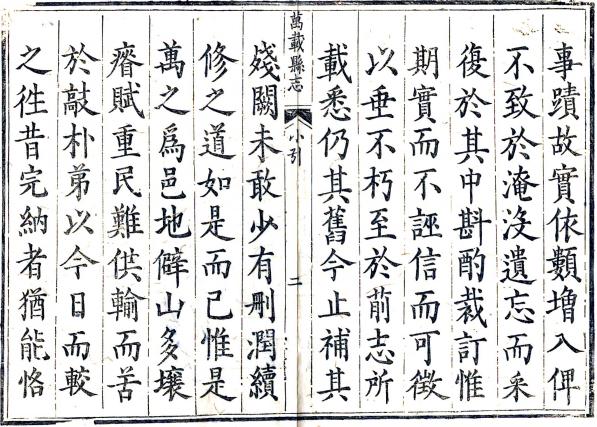 事蹟故實依類增入俾
不致於淹沒遺忘而采
復於其中斟酌裁訂惟
期實而不誣信而可徵
以垂不朽至於前志所
載悉仍其舊今止補其
萬載縣志
小引
二
殘闕未敢少有刪潤續
修之道如是而已惟是
萬之爲邑地僻山多壤
瘠賦重民難供輸而苦
於敲朴第以今日而較
之徃昔完納者猶能恪